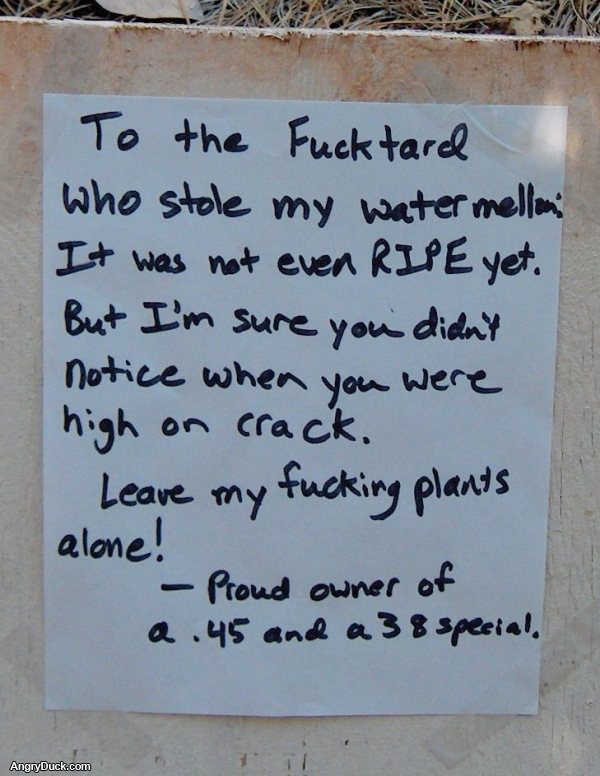 To the Fucktard
who stole my watermellon:
It was not even RIPE yet.
But I'm sure you didn't
notice when you were
high on crack.
Leave my fucking plants
alone!
— Proud owner of
a .45 and a 38 special.
AngryDuck.com